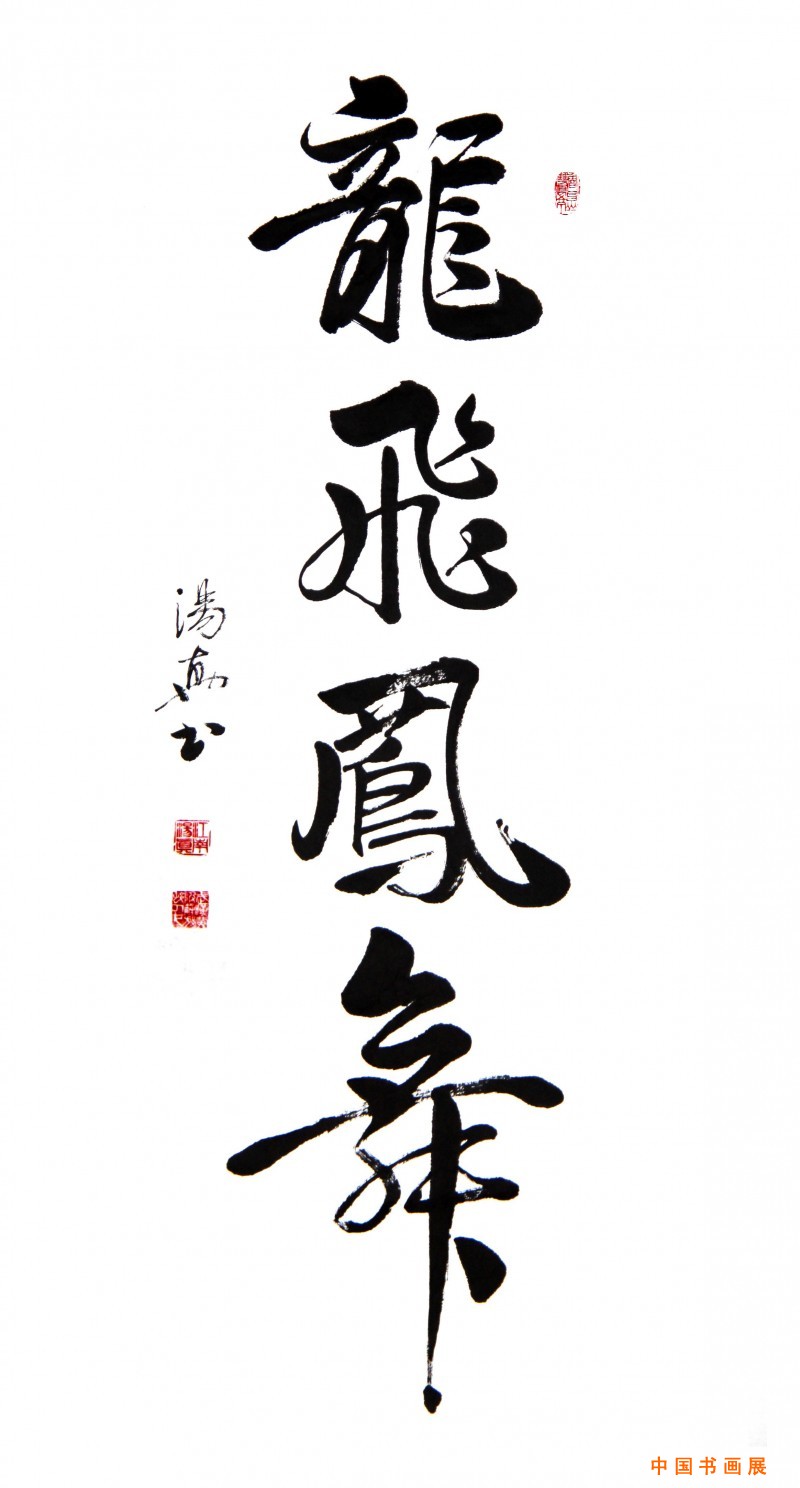 龍飛鳳舞
湯勇书
中国书画展